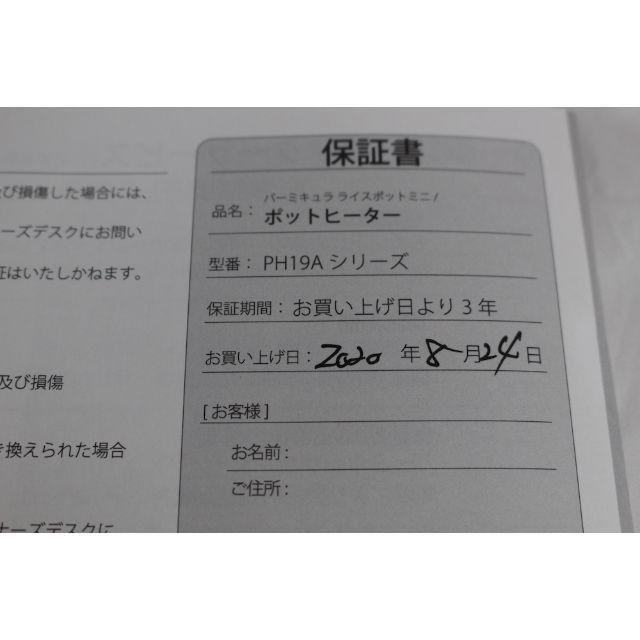 及び損傷した場合には、
ーズデスクにお問い
証はいたしかねます。
及び損傷
き換えられた場合
ナーズデスクに
保証書
バーミキュラ ライスポットミニ /
品名： ポットヒーター
型番： PH19A シリーズ
保証期間： お買い上げ日より 3 年
お買い上げ日： 2020 年 8 月 24 日
[ お客様 ]
お名前：
ご住所：